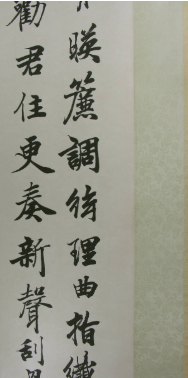 暎簾調絃理曲指纖
勸君住更奏新聲刮